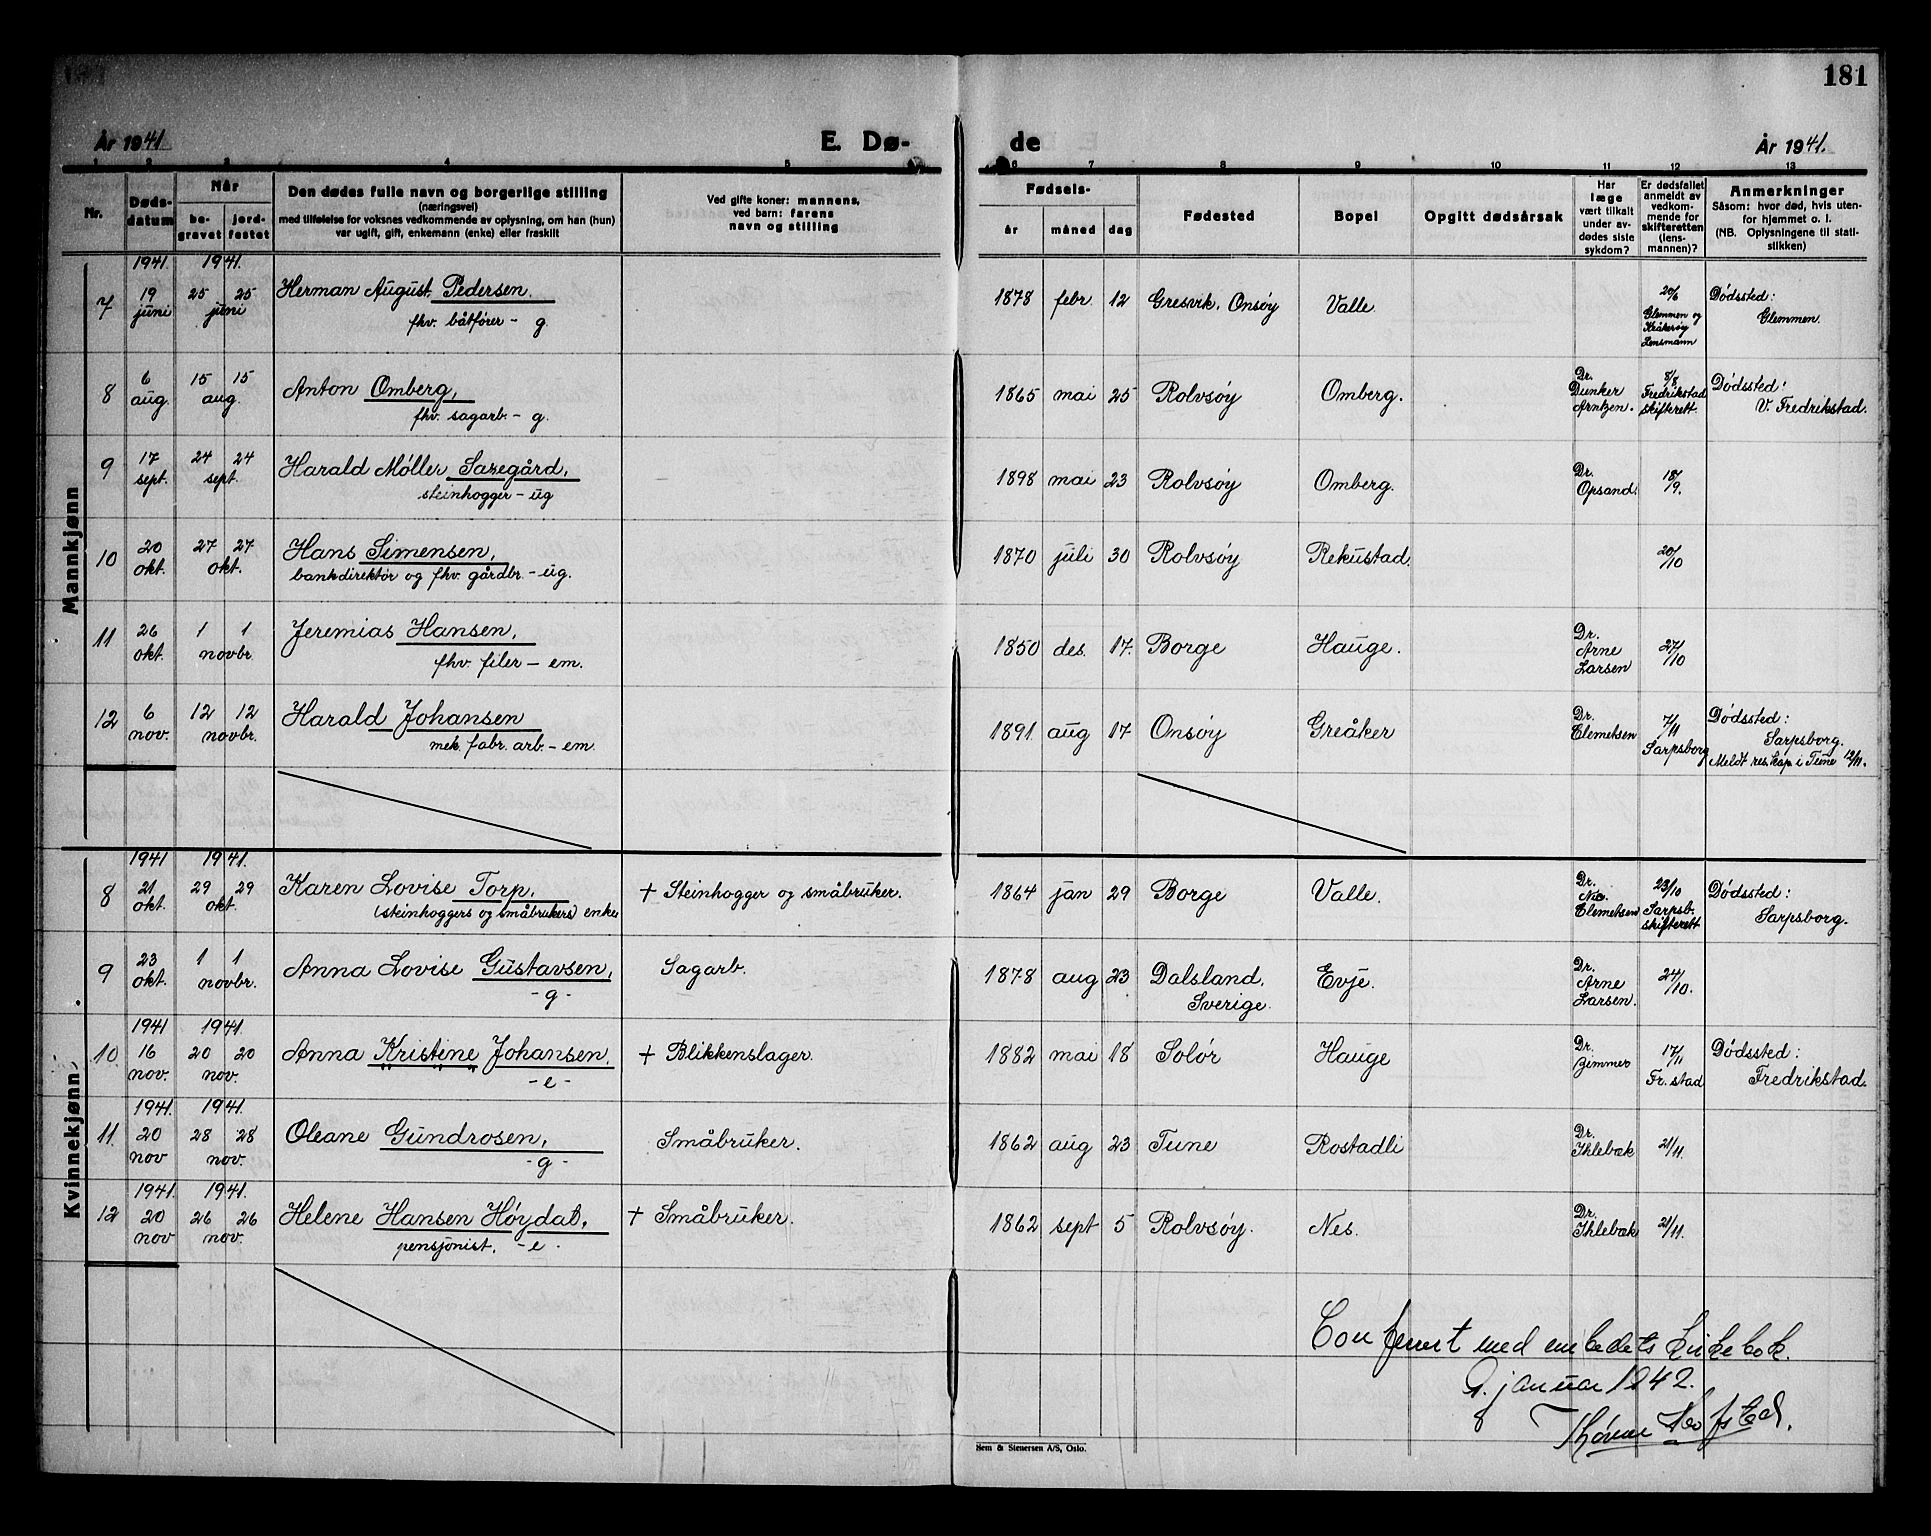 181
År 1941.
E. Dø-
de
År 1941.
1 2 3 4 5 6 7 8 9 10 11 12 13
Nr.
Døds-
datum
Når
be-
gravet
jord-
festet
Den dødes fulle navn og borgerlige stilling
(næringsvei)
med tilføielse for voksnes vedkommende av oplysning, om han (hun)
var ugift, gift, enkemann (enke) eller fraskilt
Ved gifte koner: mannens,
ved barn: farens
navn og stilling
Fødsels-
år måned dag
Fødested
Bopel
Opgitt dødsårsak
Har
læge
vært tilkalt
under av-
dødes siste
sykdom?
Er dødsfallet
anmeldt av
vedkom-
mende for
skifteretten
(lens-
mannen)?
Anmerkninger
Såsom: hvor død, hvis uten-
for hjemmet o. l.
(NB. Oplysningene til stati-
stikken)
Mannkjønn
1941. 1941.
7 19 juni 25 25 juni Herman August Pedersen. 1878 febr. 12 Gresvik, Onsøy Valle. 20/6 Glemmen og Kråkerøy Lensmann Dødssted: Glemmen.
fhv. båtfører - g.
8 6 aug. 15 15 aug. Anton Omberg, 1865 mai 25 Rolvsøy Omberg. Dr. Dunker Arntzen. 8/8 Fredrikstad skifterett. Dødssted: V. Fredrikstad.
fhv. sagarb. - g.
9 17 sept. 24 24 sept. Harald Møller 1898 mai 23 Rolvsøy Omberg. Dr. Opsand. 18/19.
steinhogger - ug
10 20 okt. 27 27 okt. Hans Simensen, 1870 juli 30 Rolvsøy Rekustad. 20/10
bankdirektør og fhv. gårdbr. - ug.
11 26 okt. 1 1 novbr. Jeremias Hansen, 1850 des. 17. Borge Hauge. Dr. Arne Larsen 27/10
fhv. filer - em.
12 6 nov. 12 12 novbr. Harald Johansen 1891 aug 17 Onsøy Greåker Dr. Elemetsen 7/11 Sarpsborg Dødssted: Sarpsborg. Meldt res. kap i Tune 12/11.
mek. fabr. arb. - em.
Kvinnekjønn
1941 1941.
8 21 okt. 29 29 okt. Karen Lovise Torp, + Steinhogger og småbruker. 1864 jan 29 Borge Valle. Dr. Elemetsen 23/10 Sarpsb. skifterett Dødssted: Sarpsborg.
(steinhoggers og småbrukers) enke
9 23 okt. 1 1 novbr. Anna Lovise Gustavsen, Sagarb. 1878 aug 23 Dalsland, Sverige. Evje. Dr. Arne Larsen. 24/10.
- g -
1941 1941.
10 16 nov. 20 20 nov. Anna Kristine Johansen. + Blikkenslager. 1882 mai 18 Solør Hauge Dr. Zimmer 17/11 Fr.stad Dødssted: Fredrikstad.
- e -
1941. 1941.
11. 20 nov 28 28 nov. Oleane Gundrosen, Småbruker. 1862 aug 23 Tune Rostadli Dr. Ihlebæk 21/11.
- g -
1941. 1941.
12 20 nov 26 26 nov. Helene Hansen Høydal, + Småbruker. 1862 sept 5 Rolvsøy. Nes. Dr. Ihlebæk 21/11.
pensjonist. - e -
Conferert med embedets kirkebok.
9. januar 1942.
Sem & Stenersen A/S, Oslo.